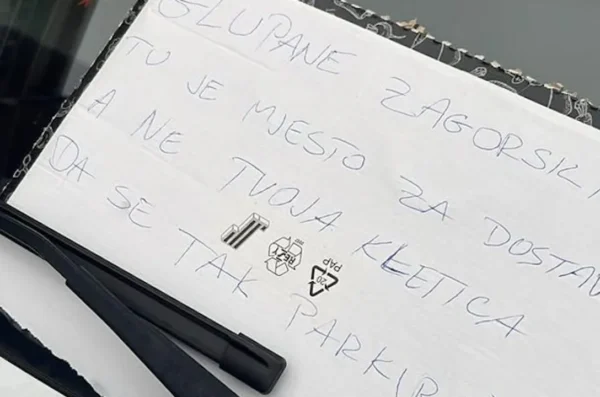 GLUPANE ZAGORSKI
TU JE MJESTO ZA DOSTAV
A NE TVOJA KLETICA
DA SE TAK PARKIR
RESY
20
PAP